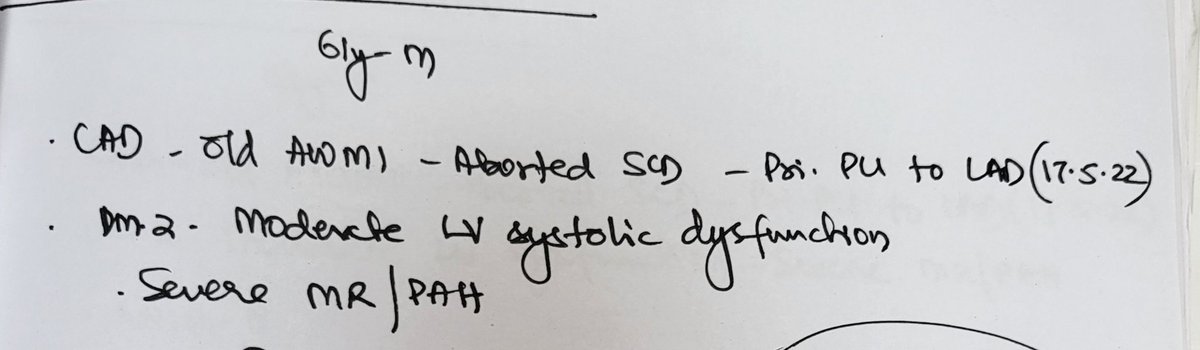 61y-M
. CAD - Old AWMI - Aborted SCD - Pri. PCI to LAD (17.5.22)
. DM-2 - Moderate LV systolic dysfunction
. Severe MR/PAH